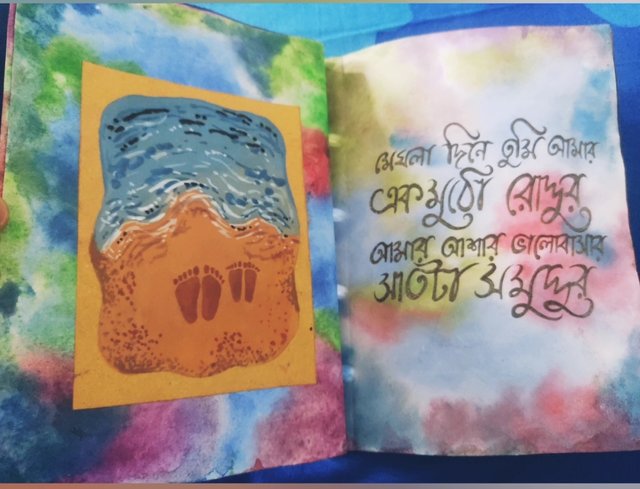 মেঘলা দিনে তুমি আমার
একমুঠো রোদ্দুর
আমার আশার ভালোবাসার
সাতটা সমুদ্দুর